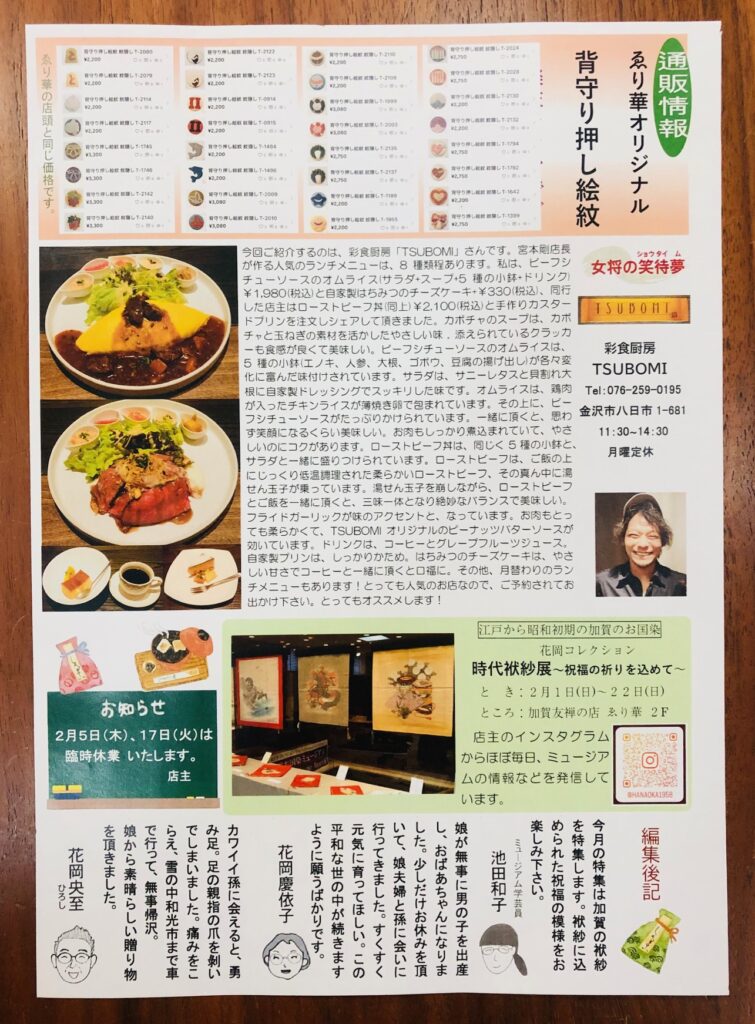 通販情報
ゑり華オリジナル
背守り押し絵紋
ゑり華の店頭と同じ価格です。
背守り押し絵紋 紋隠し T-2080
¥2,200
背守り押し絵紋 紋隠し T-2079
¥2,200
背守り押し絵紋 紋隠し T-2114
¥2,200
背守り押し絵紋 紋隠し T-2117
¥2,200
背守り押し絵紋 紋隠し T-1745
¥3,300
背守り押し絵紋 紋隠し T-1746
¥3,300
背守り押し絵紋 紋隠し T-2142
¥3,300
背守り押し絵紋 紋隠し T-2140
¥3,300
背守り押し絵紋 紋隠し T-2122
¥2,200
背守り押し絵紋 紋隠し T-2123
¥2,200
背守り押し絵紋 紋隠し T-0914
¥2,200
背守り押し絵紋 紋隠し T-0915
¥2,200
背守り押し絵紋 紋隠し T-1494
¥2,200
背守り押し絵紋 紋隠し T-1496
¥2,200
背守り押し絵紋 紋隠し T-2009
¥3,080
背守り押し絵紋 紋隠し T-2010
¥3,080
女将の笑待夢
ショウタイム
TSUBOMI
彩食厨房
TSUBOMI
Tel:076-259-0195
金沢市八日市1-681
11:30~14:30
月曜定休
今回ご紹介するのは、彩食厨房「TSUBOMI」さんです。宮本剛店長
が作る人気のランチメニューは、8 種類程あります。私は、ビーフシ
チューソースのオムライス(サラダ・スープ・5 種の小鉢・ドリンク)
¥1,980(税込)と自家製はちみつのチーズケーキ・¥330(税込)、同行
した店主はローストビーフ丼(同上)¥2,100(税込)と手作りカスター
ドプリンを注文しシェアして頂きました。カボチャのスープは、カボ
チャと玉ねぎの素材を活かしたやさしい味．添えられているクラッカ
ーも食感が良くて美味しい。ビーフシチューソースのオムライスは、
5 種の小鉢(エノキ、人参、大根、ゴボウ、豆腐の揚げ出し)が各々変
化に富んだ味付けされています。サラダは、サニーレタスと貝割れ大
根に自家製ドレッシングでスッキリした味です。オムライスは、鶏肉
が入ったチキンライスが薄焼き卵で包まれています。その上に、ビー
フシチューソースがたっぷりかけられています。一緒に頂くと、思わ
ず笑顔になるくらい美味しい。お肉もしっかり煮込まれていて、やさ
しいのにコクがあります。ローストビーフ丼は、同じく 5 種の小鉢と、
サラダと一緒に盛りつけられています。ローストビーフは、ご飯の上
にじっくり低温調理された柔らかいローストビーフ、その真ん中に湯
せん玉子が乗っています。湯せん玉子を崩しながら、ローストビーフ
とご飯を一緒に頂くと、三味一体となり絶妙なバランスで美味しい。
フライドガーリックが味のアクセントと、なっています。お肉もとっ
ても柔らかくて、TSUBOMI オリジナルのピーナッツバターソースが
効いています。ドリンクは、コーヒーとグレープフルーツジュース。
自家製プリンは、しっかりかため。はちみつのチーズケーキは、やさ
しい甘さでコーヒーと一緒に頂くと口福に。その他、月替わりのラン
チメニューもあります！とっても人気のお店なので、ご予約されてお
出かけ下さい。とってもオススメします！
お知らせ
2月5日(木)、17日(火)は
臨時休業 いたします。
店主
江戸から昭和初期の加賀のお国染
花岡コレクション
時代袱紗展～祝福の祈りを込めて～
と き：2月1日(日)～22日(日)
ところ：加賀友禅の店 ゑり華 2F
店主のインスタグラム
からほぼ毎日、ミュージア
ムの情報などを発信して
います。
@HANAOKA1958
編集後記
今月の特集は加賀の袱紗
を特集します。袱紗に込
められた祝福の模様をお
楽しみ下さい。
ミュージアム学芸員
池田和子
娘が無事に男の子を出産
し、おばあちゃんになりま
した。少しだけお休みを頂
いて、娘夫婦と孫に会いに
行ってきました。すくすく
元気に育ってほしい。この
平和な世の中が続きます
ように願うばかりです。
花岡慶依子
カワイイ孫に会えると、勇
み足。足の親指の爪を剥い
でしまいました。痛みをこ
らえ、雪の中和光市まで車
で行って、無事帰沢。
娘から素晴らしい贈り物
を頂きました。
花岡央至
ひろし